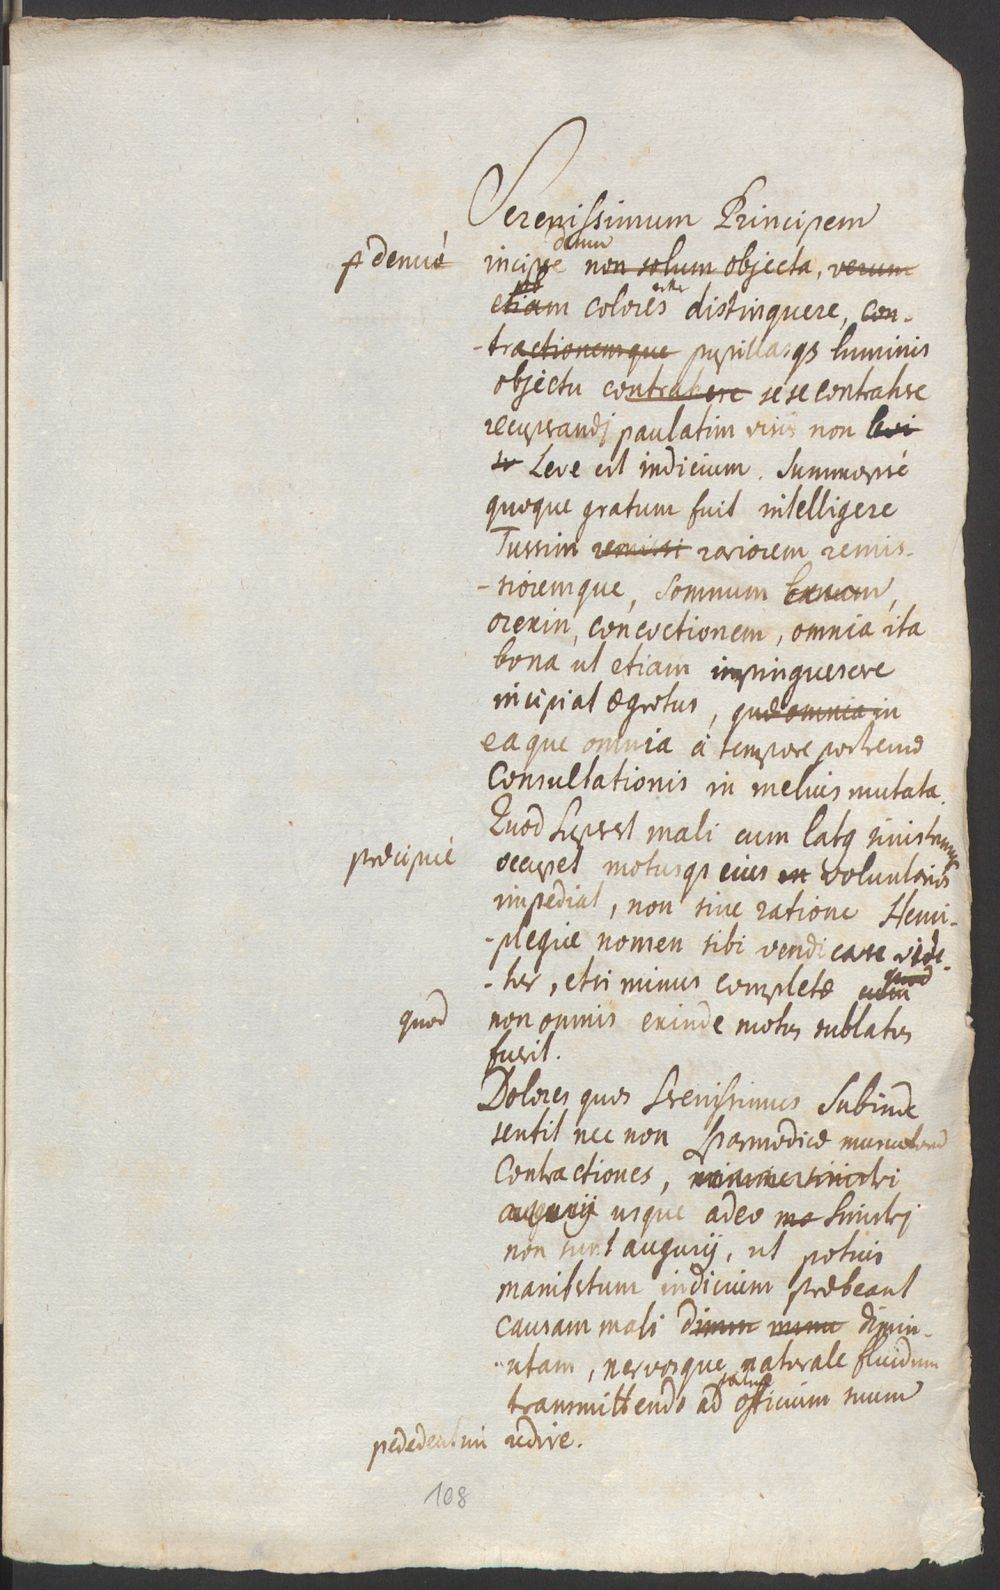 Serenissimum Principem
denuò
denuo
incipere non solum objecta, verum
etiam colores distinquere, con-
-tractionemque pupillasqȝ luminis
objectu contrahere sese contrahere
recuperandj paulatim visus non levi
Leve est indicium. Summopere
quoque gratum fuit intelligere
Tussim remissi rariorem remis-
-sioremque, somnum bonum,
orexin, concoctionem, omnia ita
bona ut etiam impinguescere
incipiat ægrotus, quæ omnia in
eaque omnia à tempore postremæ
Consultationis in melius mutata.
Quod superest mali cum latq sinistrum
præcipuè
occupet motusqȝ eius voluntarios
impediat, non sine ratione Hemi-
-plegiæ nomen sibi vendicare vide-
-tur, etsi minus completæ cum quod
quod
non omnis exinde motus sublatus
fuerit.
Dolores quos Serenissimus Subinde
sentit nec non Spasmodicæ musculorum
Contractiones, minime sinistri
augurij usque adeo sinistrj
non sunt augurij, ut potius
manifestum indicium præbeant
causam mali dimin-
-utam, nervosque naturale fluidum
transmittendo ad officium suum
pededentim
redire.
108